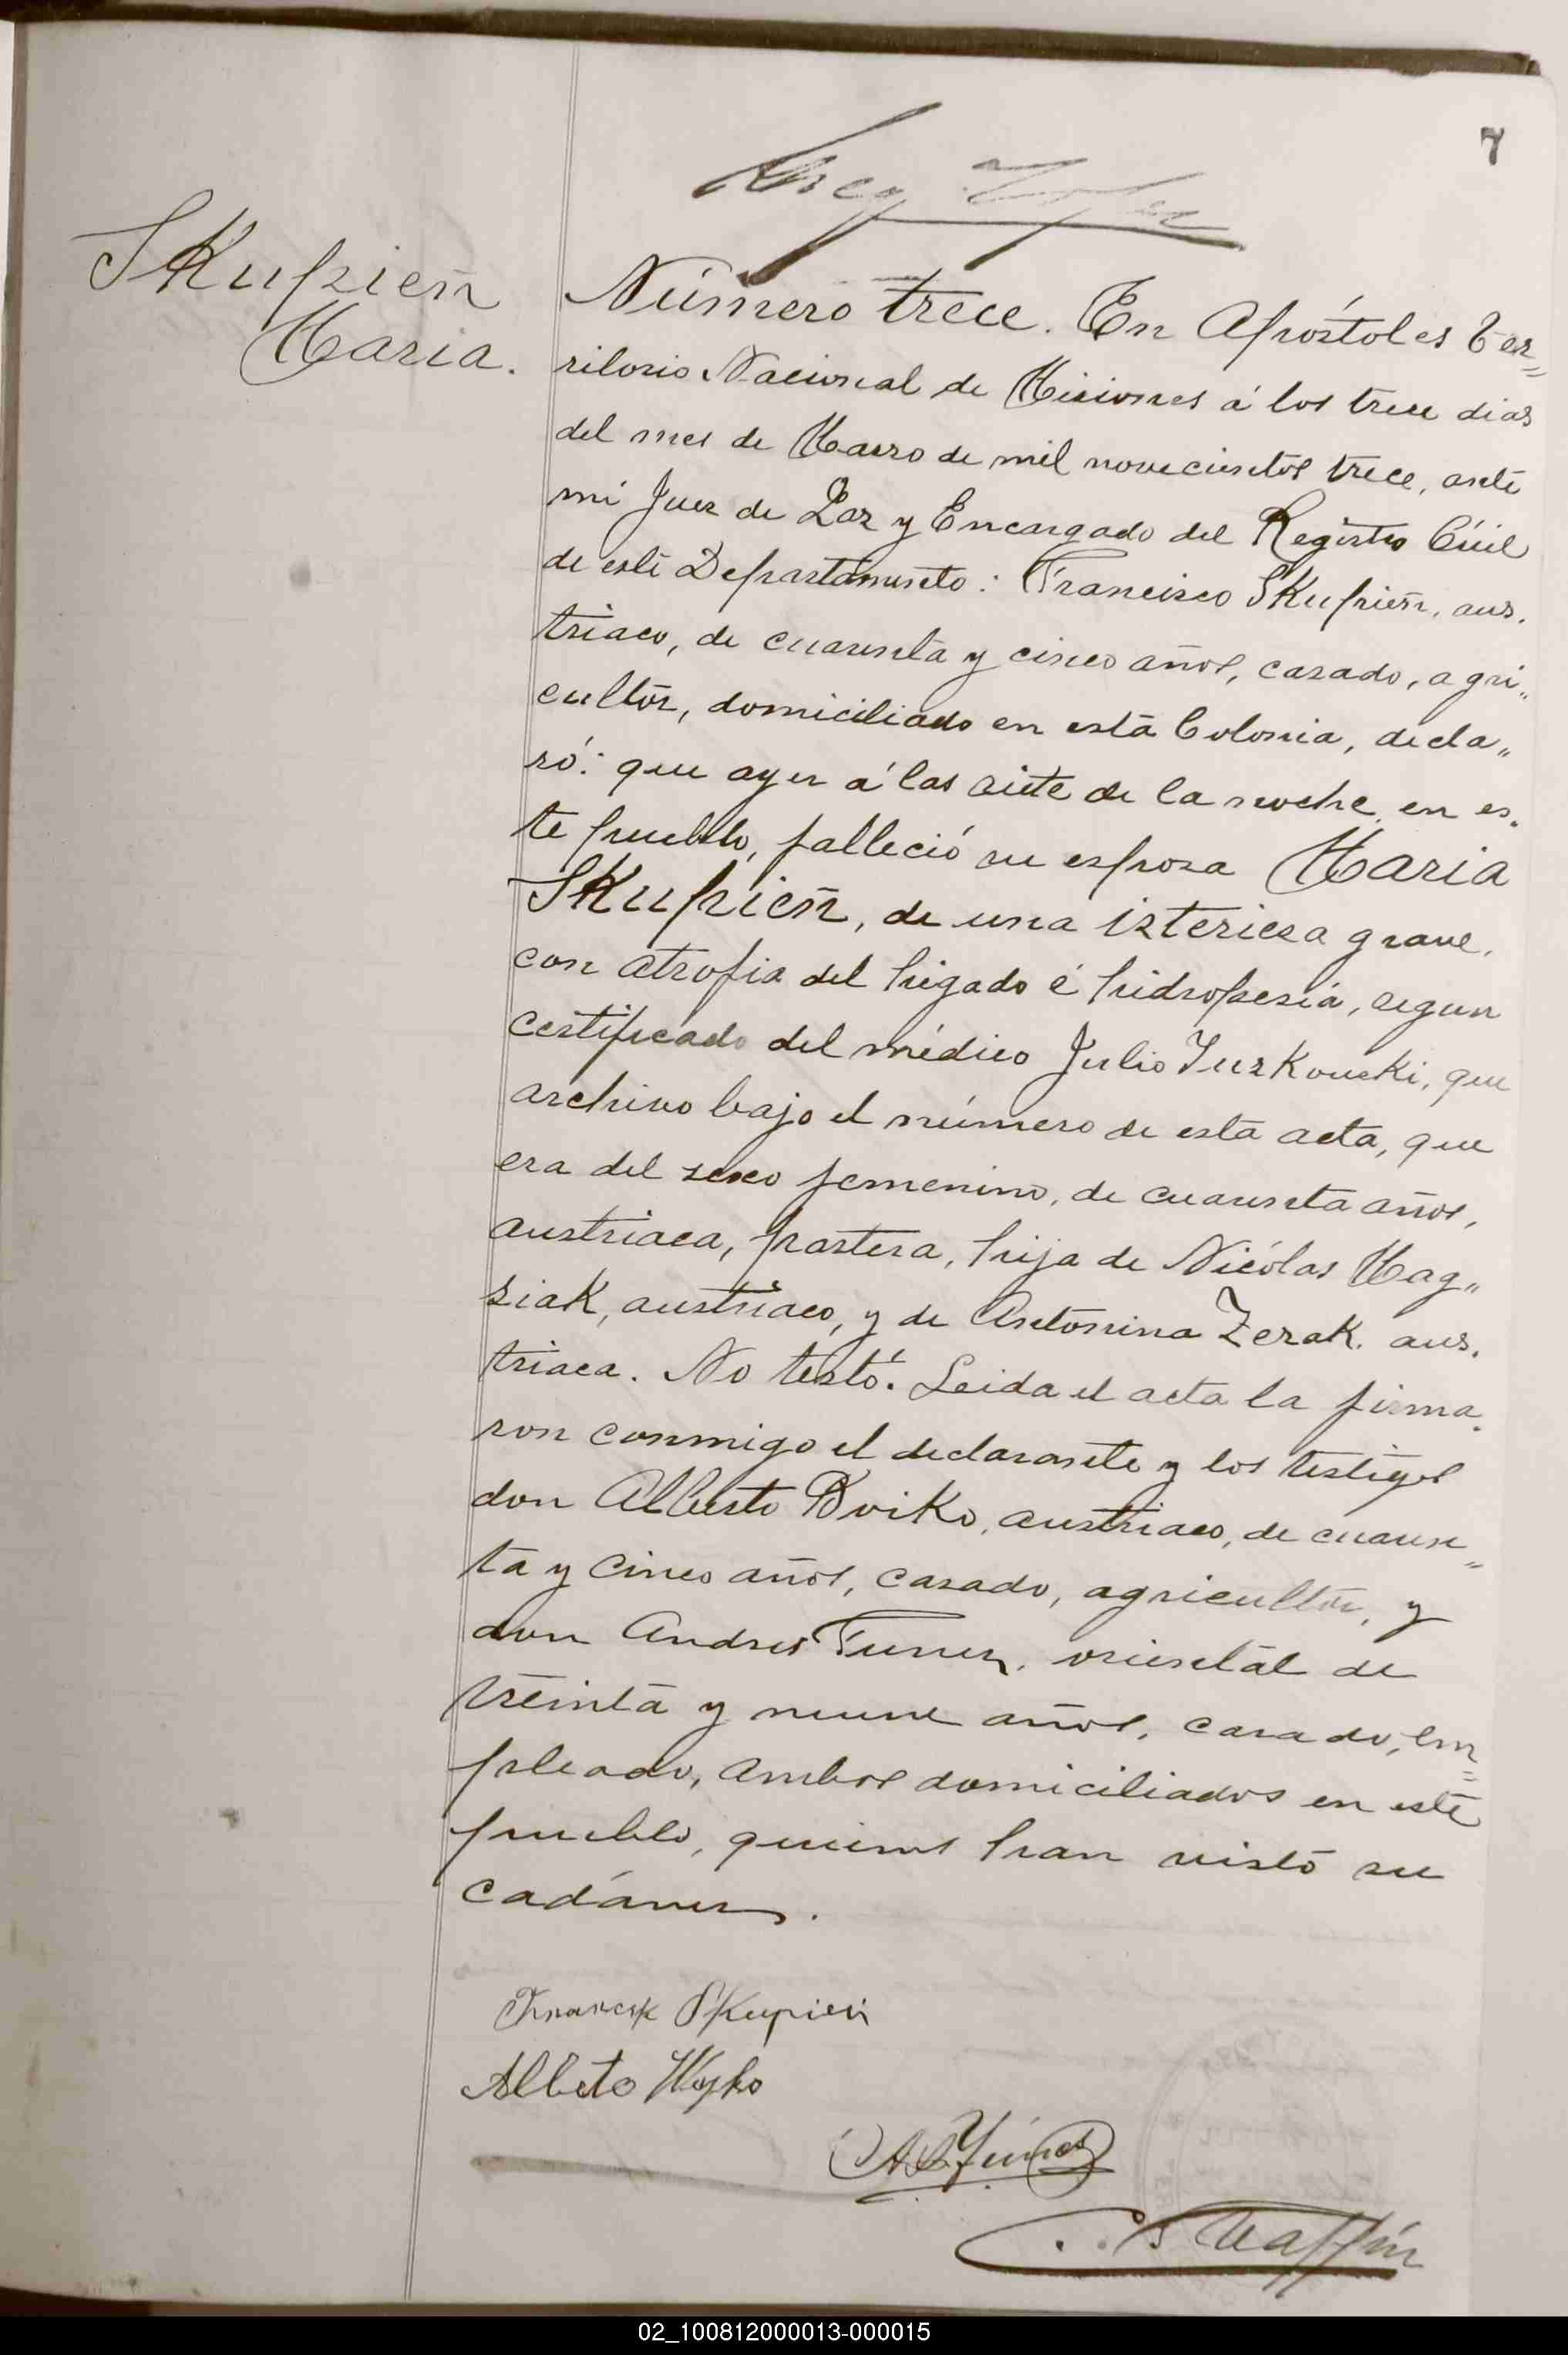 7
Skupień
Maria.
Número trece. En Apóstoles Ter=
ritorio Nacional de Misiones á los trece dias
del mes de Marzo de mil novecientos trece, ante
mi Juez de Paz y Encargado del Registro Civil
de este Departamento: Francisco Skupień, aus.
triaco, de cuarenta y cinco años, casado, agri„
cultor, domiciliado en esta Colonia, decla„
ró: que ayer á las siete de la noche, en es.
te pueblo, falleció su esposa Maria
Skupień, de una istericia grave,
con atrofia del higado é hidropesia, segun
certificado del médico Julio Juzkowski, que
archivo bajo el número de esta acta, que
era del sexo femenino, de cuarenta años,
austriaca, partera, hija de Nicólas Mag„
ziak, austriaco, y de Antonina Zerak, aus.
triaca. No testó. Leida el acta la firma.
ron conmigo el declarante y los testigos
don Alberto Boiko, austriaco, de cuaren„
ta y cinco años, casado, agricultor, y
don Andres Funes, oriental de
treinta y nueve años, casado, em=
pleado, ambos domiciliados en este
pueblo, quienes han visto su
cadáver.
Skupień
Albeto Wojko
02_100812000013-000015